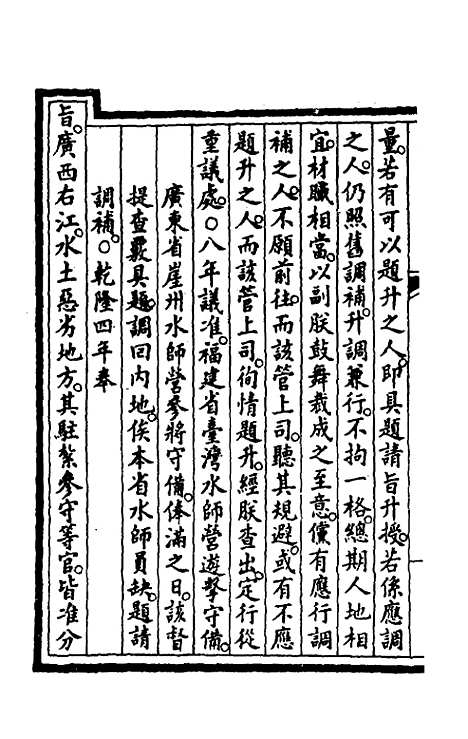 量。若有可以題升之人。即具題請旨升授。若係應調
之人。仍照舊調補。升調兼行。不拘一格。總期人地相
宜。材職相當。以副朕鼓舞裁成之至意。儻有應行調
補之人。不願前往。而該管上司。聽其規避。或有不應
題升之人。而該管上司。徇情題升。經朕查出。定行從
重議處。○八年議准。福建省臺灣水師營遊擊守備。
廣東省崖州水師營參將守備。俸滿之日。該督
提查覈具題。調回內地。俟本省水師員缺。題請
調補。○乾隆四年奉
旨。廣西右江。水土惡劣地方。其駐紮參守等官。皆准分